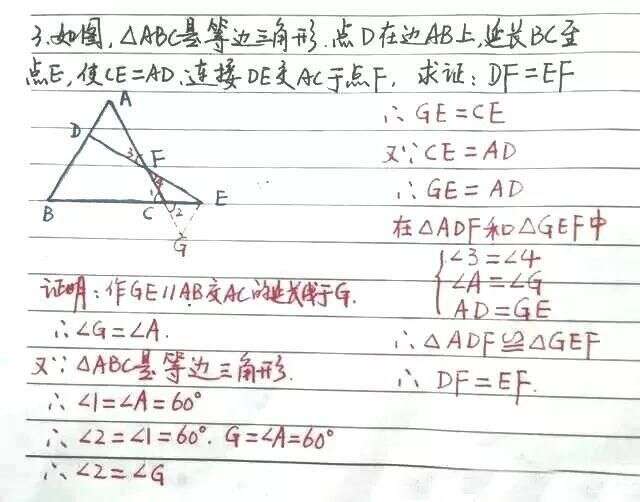 3.如图,△ABC是等边三角形.点D在边AB上,延长BC至
点E,使CE=AD.连接DE交AC于点F, 求证:DF=EF
A
D
3
F
4
B
C
1
2
E
G
证明:作GE∥AB交AC的延长线于G.
∴∠G=∠A.
又∵△ABC是等边三角形.
∴∠1=∠A=60°
∴∠2=∠1=60°. G=∠A=60°
∴∠2=∠G
∴GE=CE
又∵CE=AD
∴GE=AD
在△ADF和△GEF中
∠3=∠4
∠A=∠G
AD=GE
∴△ADF≌△GEF
∴DF=EF.